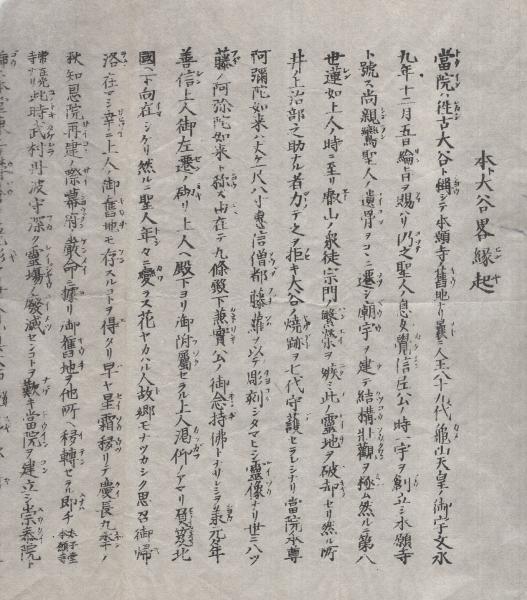 本大谷畧縁起
當院ハ徃古大谷ト稱シテ本願寺ノ舊地ナリ龜山天皇ノ御宇文永
九年十二月五日綸旨ヲ賜ハリ乃之聖人ノ息女覺信尼公ノ時一宇ヲ創立シ本願寺
ト號ス尚親鸞聖人ノ遺骨ヲコヽニ遷シ廟宇ヲ建テ結構壯觀ヲ極ム然ルニ第八
世蓮如上人ノ時ニ至リ叡山ノ衆徒宗門ノ繁榮ヲ嫉ミ此ノ靈地ヲ破却セリ然ル所
井ノ上治部之助ナル者力テ之ヲ拒キ大谷ノ燒跡ヲ七代守護セラレシナリ當院本尊
阿彌陀如來ハ丈ケ一尺八寸惠信僧都藤蘿ヲ以テ彫刻シタマヒシ靈像ナリ世ニハツ
藤ノ阿弥陀如來ト称ス由在テ九條殿下兼實公ノ御念持佛トナリシヲ承元々年
善信上人御左遷ノ砌リ上人ヘ殿下ヨリ御附屬セラル上人渇仰ノアマリ負テ北
國ヘ下向在シタリ然ルニ聖人年々ニ變ラス花ヤカヘル人故郷モナツカシク思召御帰
洛在マシ幸ニ上人ノ御舊地モ存スルコトヲ得タリ早ヤ星霜移リテ慶長九年ノ
秋知恩院再建ノ際幕府ノ嚴命ニ據リ御舊地ヲ他所ヘ移轉セラル即チ
寺ナリ此時武村丹波守深ク靈場ノ廢滅センコトヲ歎キ當院ヲ建立シ崇泰院ト